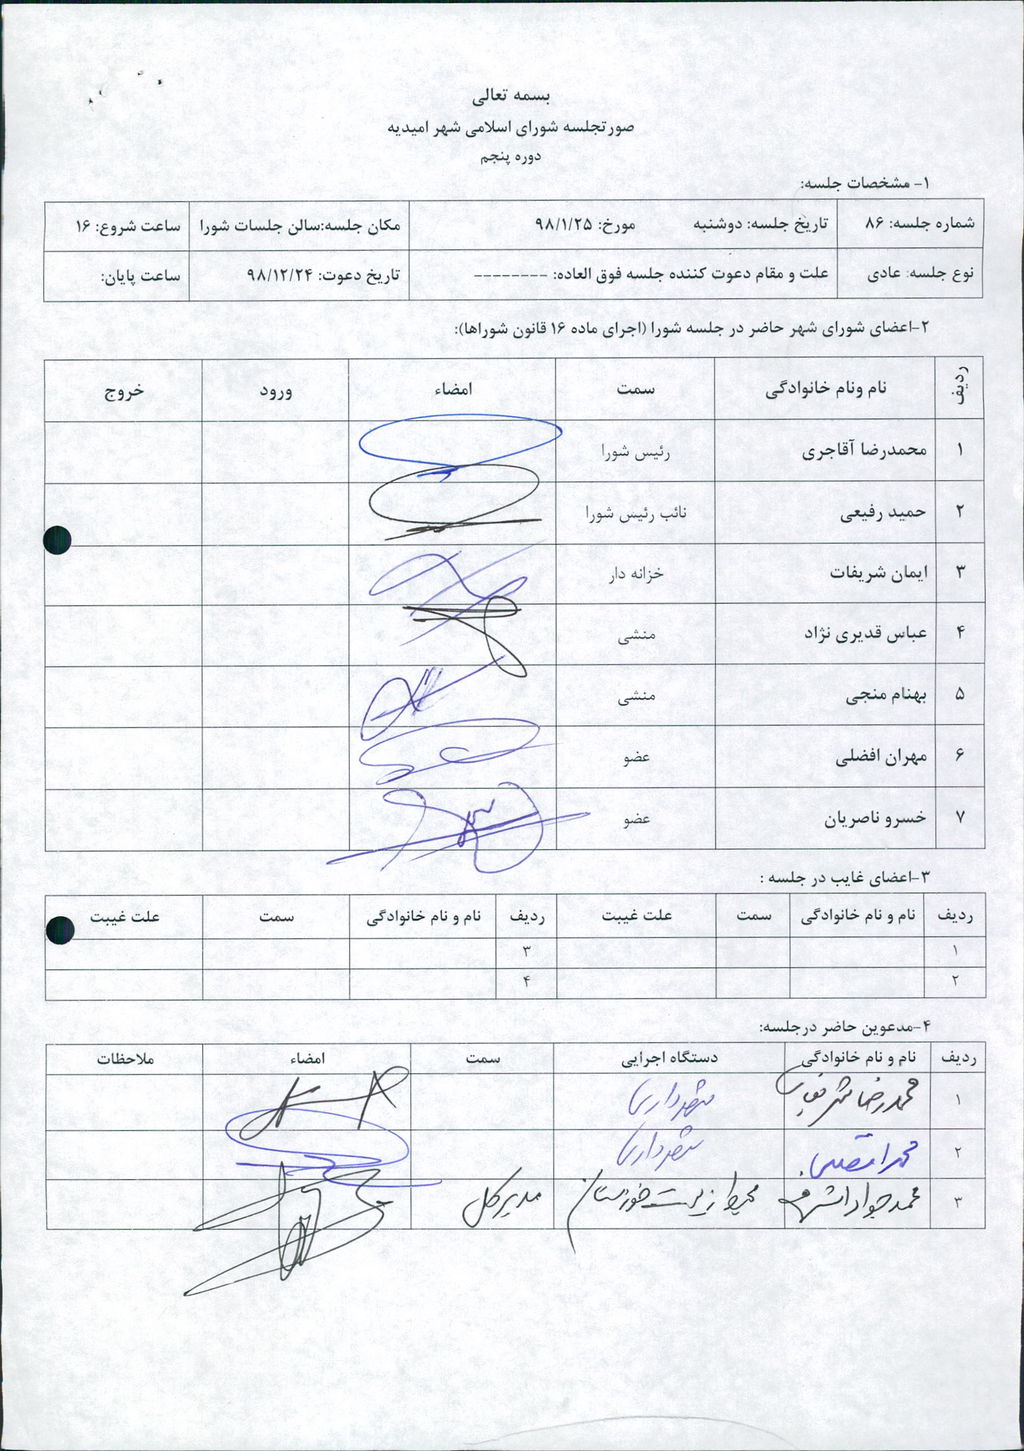 بسمه تعالی
صورتجلسه شورای اسلامی شهر امیدیه
دوره پنجم
۱- مشخصات جلسه:
شماره جلسه: ۸۶ تاریخ جلسه: دوشنبه مورخ: ۹۸/۱/۲۵ مکان جلسه:سالن جلسات شورا ساعت شروع: ۱۶
نوع جلسه: عادی علت و مقام دعوت کننده جلسه فوق العاده: -------- تاریخ دعوت: ۹۸/۱۲/۲۴ ساعت پایان:
۲-اعضای شورای شهر حاضر در جلسه شورا (اجرای ماده ۱۶ قانون شوراها):
ردیف نام ونام خانوادگی سمت امضاء ورود خروج
۱ محمدرضا آقاجری رئیس شورا
۲ حمید رفیعی نائب رئیس شورا
۳ ایمان شریفات خزانه دار
۴ عباس قدیری نژاد منشی
۵ بهنام منجی منشی
۶ مهران افضلی عضو
۷ خسرو ناصریان عضو
۳-اعضای غایب در جلسه :
ردیف نام و نام خانوادگی سمت علت غیبت ردیف نام و نام خانوادگی سمت علت غیبت
۱ ۳
۲ ۴
۴-مدعوین حاضر درجلسه:
ردیف نام و نام خانوادگی دستگاه اجرایی سمت امضاء ملاحظات
۱ محمدرضا شریفات شهرداری
۲ شهرداری
۳ محمدجواد اشرفی محیط زیست خوزستان مدیرکل